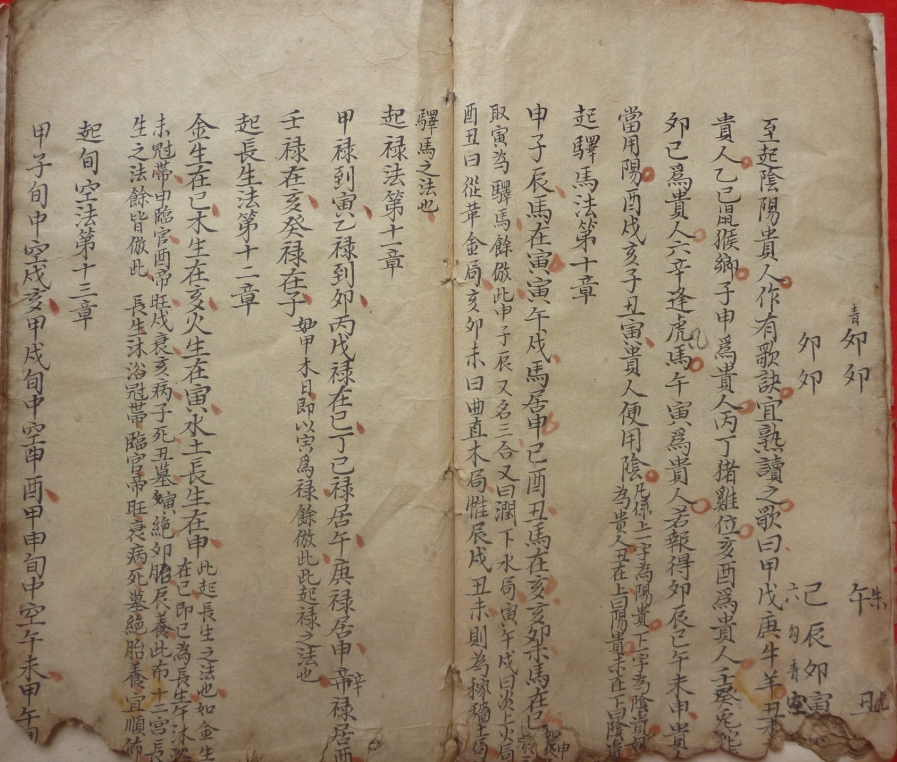 青 卯 卯 午 朱 丑 虎
卯 卯 己 辰 卯 寅 六 勾 青
至起陰陽貴人作有歌訣宜熟讀之歌曰甲戊庚牛羊丑
貴人乙己鼠猴鄉子申為貴人丙丁猪雞位亥酉為貴人壬癸兎
卯巳為貴人六辛逢虎馬午寅為貴人若報得卯辰巳午未申貴人
當用陽酉戌亥子丑寅貴人便用陰凡係上一字為陽貴下一字為陰貴 為貴人丑在上曰陽貴未在上曰陰貴
起驛馬法第十章
申子辰馬在寅寅午戌馬居申巳酉丑馬在亥亥卯未馬在巳
取寅為驛馬餘倣此申子辰又名三合又曰潤下水局寅午戌曰炎上火局
酉丑曰從革金局亥卯未曰曲直木局惟辰戌丑未則為稼穡土局
驛馬之法也
起禄法第十一章
甲禄到寅乙禄到卯丙戊禄在巳丁己禄居午庚禄居申辛禄居酉
壬禄在亥癸禄在子如甲木日即以寅為禄餘倣此此起禄之法也
起長生法第十二章
金生在巳木生在亥火生在寅水土長生在申此起長生之法也如金生 在巳即巳為長生午沐浴
未冠帶申臨官酉帝旺戌衰亥病子死丑墓寅絕卯胎辰養此布十二宮長
生之法餘皆倣此 長生沐浴冠帶臨官帝旺衰病死墓絕胎養宜順佈
起旬空法第十三章
甲子旬中空戌亥甲戌旬中空申酉甲申旬中空午未甲午旬